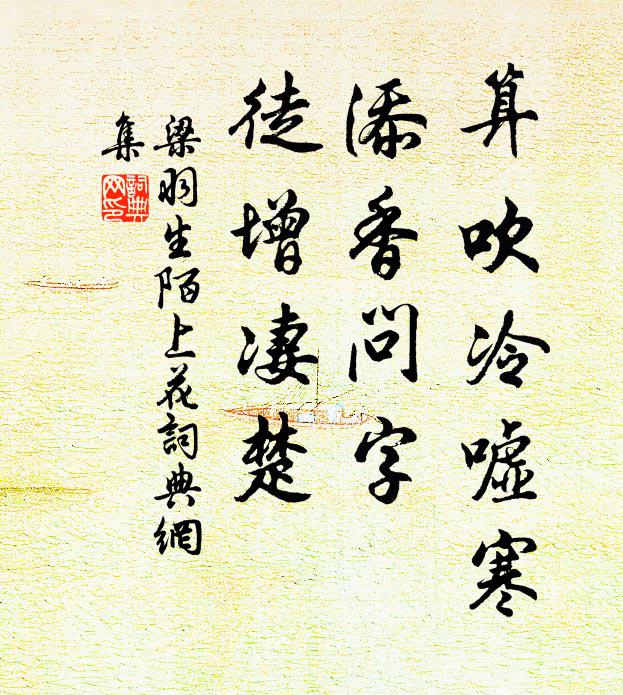 算吹冷噓寒
添香問字
徒增淒楚
梁羽生陌上花詞典網
集
詞典網印